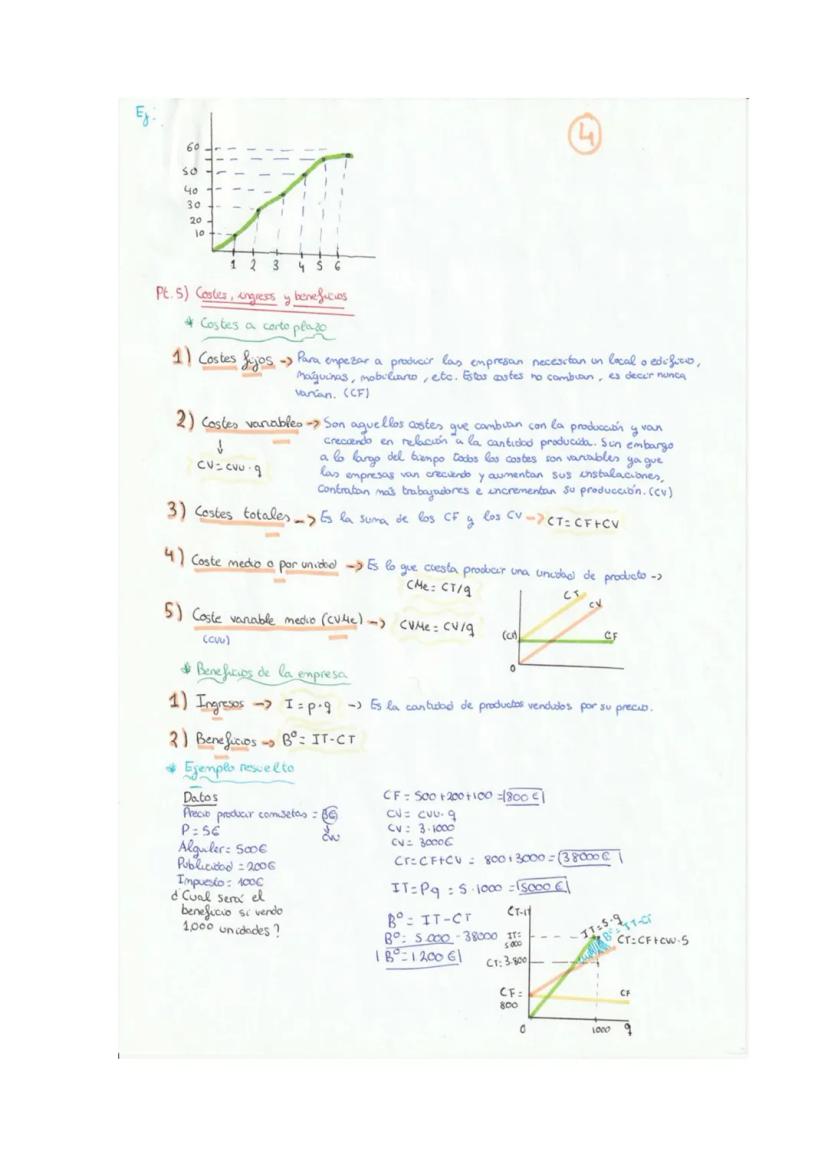 Ej:
4
60
50
40
30
20
10
1 2 3 4 5 6
Pt. 5) Costes, ingresos y beneficios
* Costes a corto plazo
1) Costes fijos -> Para empezar a producir las empresas necesitan un local o edificio,
máquinas, mobiliario, etc. Estos costes no cambian, es decir nunca
varían. (CF)
2) Costes variables -> Son aquellos costes que cambian con la producción y van
creciendo en relación a la cantidad producida. Sin embargo
a lo largo del tiempo todos los costes son variables ya que
las empresas van creciendo y aumentan sus instalaciones,
contratan más trabajadores e incrementan su producción. (CV)
↓
CV = CVU · q
3) Costes totales -> Es la suma de los CF y los CV -> CT = CF+CV
4) Coste medio o por unidad -> Es lo que cuesta producir una unidad de producto ->
CMe = CT/q
5) Coste variable medio (CVMe) -> CVMe = CV/q
(CVU)
CT
CV
(CF)
CF
0
* Beneficios de la empresa
1) Ingresos -> I = p·q -> Es la cantidad de productos vendidos por su precio.
2) Beneficios -> Bº = IT-CT
* Ejemplo resuelto
Datos
Precio producir camisetas = 3€
↓
CVU
P = 5€
Alquiler = 500€
Publicidad = 200€
Impuesto = 100€
¿Cual será el
beneficio si vendo
1,000 unidades?
CF = 500+200+100 = 800€
CV = CVU · q
CV = 3·1000
CV = 3000€
CT = CF+CV = 800+3000 = 38000€
IT = Pq = 5·1000 = 5000€
Bº = IT-CT
Bº = 5.000 - 38000
Bº = 1200€
CT-IT
IT=5·q
Bº = IT-CT
IT=
5000
CT=CF+CVU·5
CT: 3.800
CF=
800
CF
0
1000
q